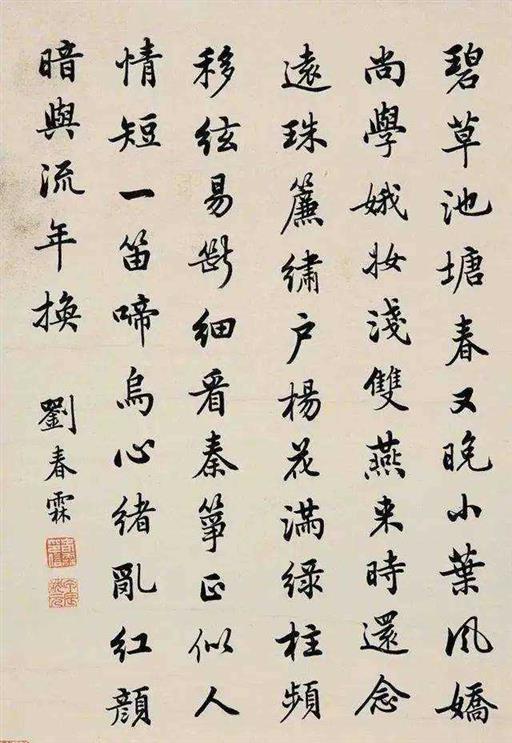 碧草池塘春又晚小葉風嬌
尚學娥妝淺雙燕来時還念
遠珠簾繡戶楊花滿綠柱頻
移絃易斷細看秦箏正似人
情短一笛啼烏心緒亂紅顏
暗與流年換
劉春霖